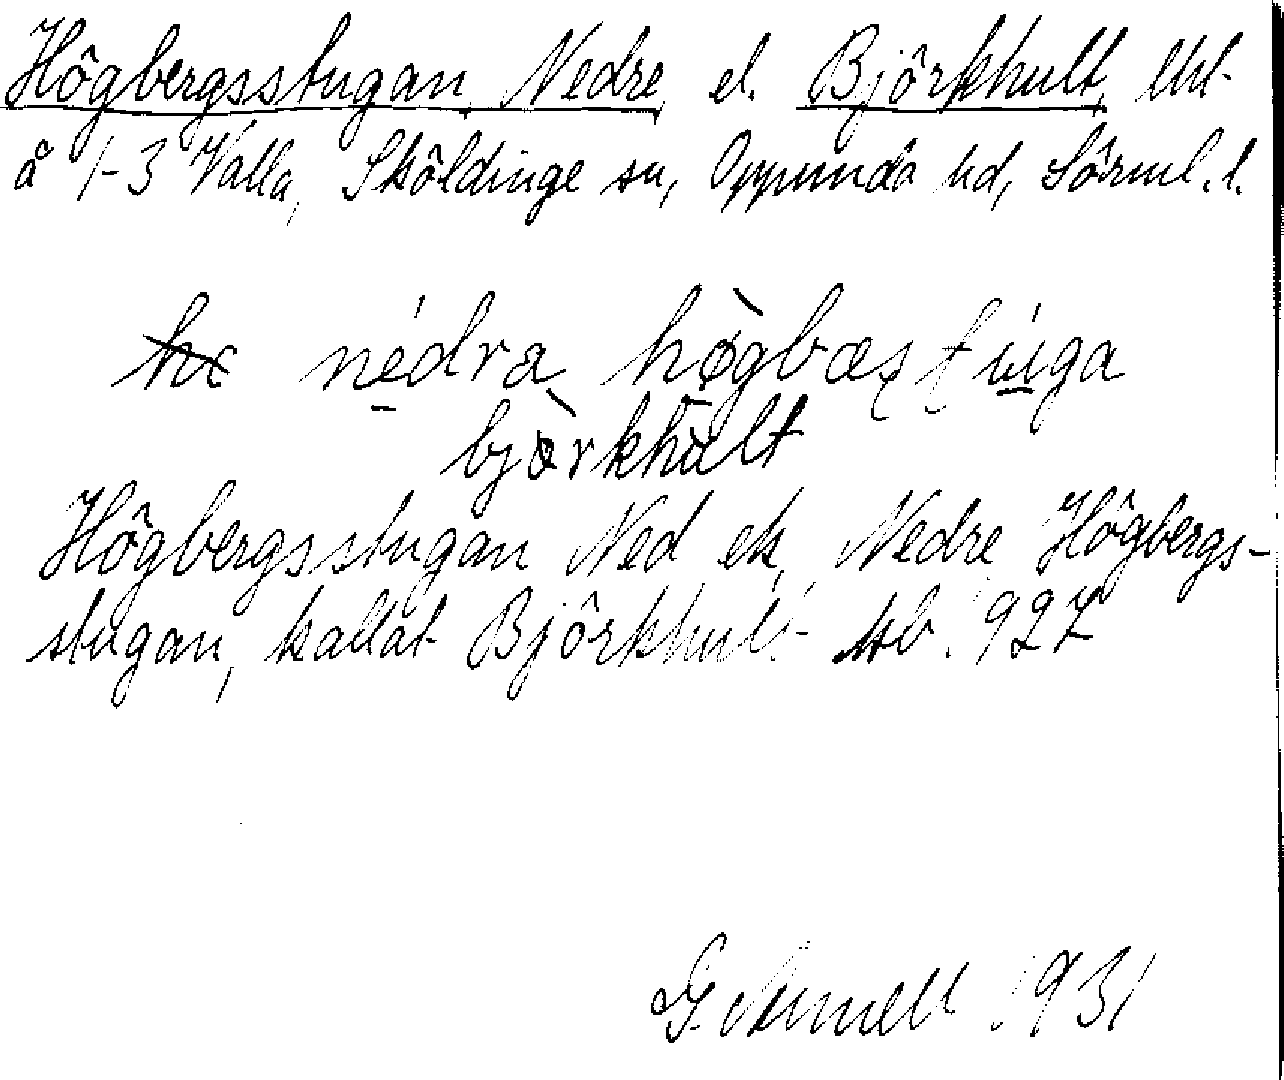 Högbergsstugan, Nedre, el. Björkhult, lht
å 1-3 Valla, Sköldinge sn, Oppunda hd, Sörml. l.
nedra høgbæsstuga
bjørkhult
Högbergsstugan Ned ek, Nedre Högbergs-
stugan, kallat Björkhult Mb. 1927
G. 1931